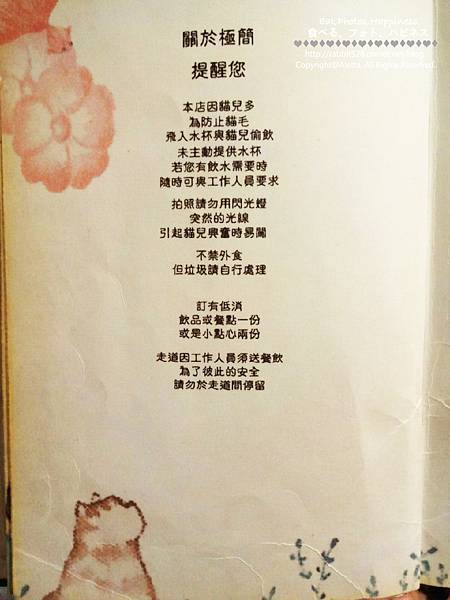 Eat, Photos, Happiness
食べる、フォト、ハピネス
關於極簡
提醒您
本店因貓兒多
為防止貓毛
飛入水杯與貓兒偷飲
未主動提供水杯
若您有飲水需要時
隨時可與工作人員要求
拍照請勿用閃光燈
突然的光線
引起貓兒興奮時易鬧
不禁外食
但垃圾請自行處理
訂有低消
飲品或餐點一份
或是小點心兩份
走道因工作人員須送餐飲
為了彼此的安全
請勿於走道間停留